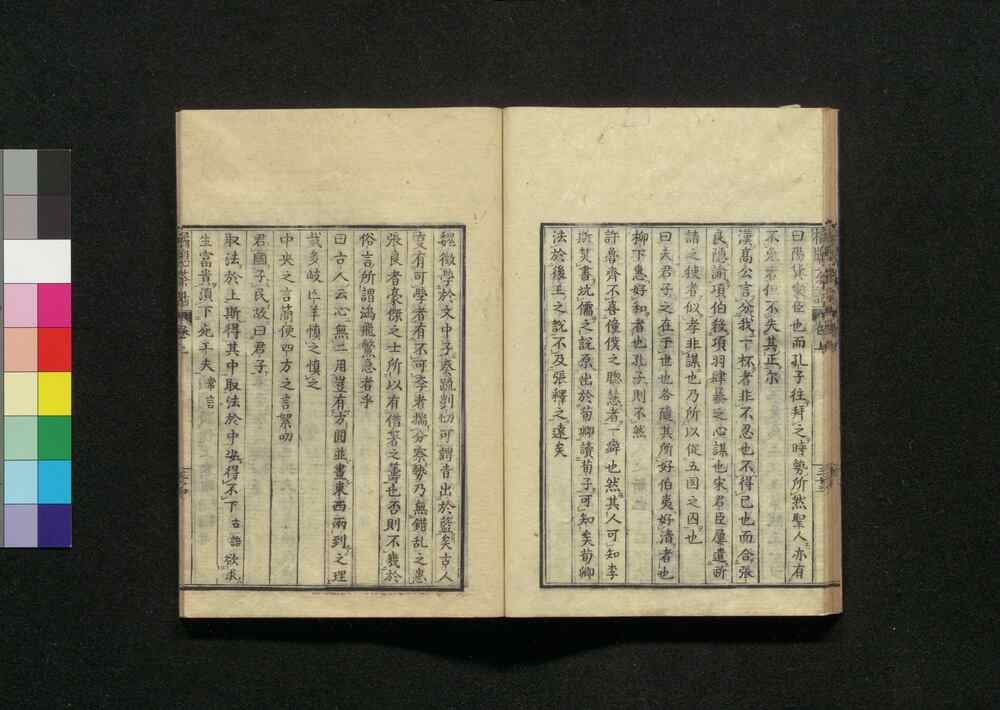 曰陽貨家臣也而孔子往拜之時勢所然聖人亦有
不免者但不失其正尔
漢高公言分我一杯者非不忍也不得已也而令張
良隱諭項伯殺項羽肆暴之心謀也宋君臣屢遣祈
請之使者似孝非謀也乃所以從五国之囚也
曰夫君子之在于世也各隨其所好伯夷好清者也
柳下惠好和者也孔子則不然
許魯齊不喜僮僕之聰慧者一癖也然其人可知李
斯焚書坑儒之說原出於荀卿讀荀子可知矣荀卿
法於後王之說不及張釋之遠矣
魏徵學於文中子奏疏剴切可謂青出於藍矣古人
有可學者有不可李者揣分察勢乃無錯乱之患
張良者豪傑之士所以有借箸之籌也否則不幾於
俗言所謂鴻飛驚急者乎
曰古人云心無二用豈有方圓並畫東西兩到之理
哉多岐亡羊慎之慎之
中央之言簡便四方之言絮叨
君國子民故曰君子
取法於上斯得其中取法於中安得不下 古語 欲求
生富貴須下死工夫 常言